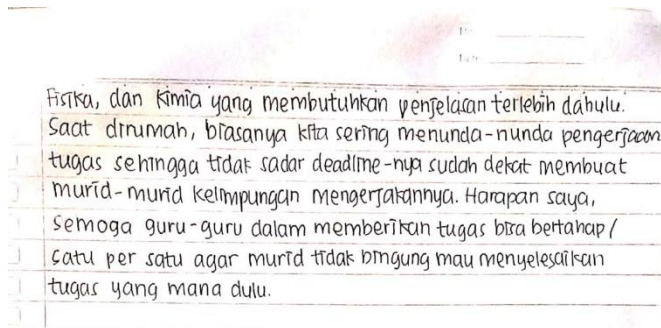 Fisika, dan Kimia yang membutuhkan penjelasan terlebih dahulu.
Saat dirumah, biasanya kita sering menunda-nunda pengerjaan
tugas sehingga tidak sadar deadline-nya sudah dekat membuat
murid-murid kelimpungan mengerjakannya. Harapan saya,
semoga guru-guru dalam memberikan tugas bisa bertahap/
satu per satu agar murid tidak bingung mau menyelesaikan
tugas yang mana dulu.